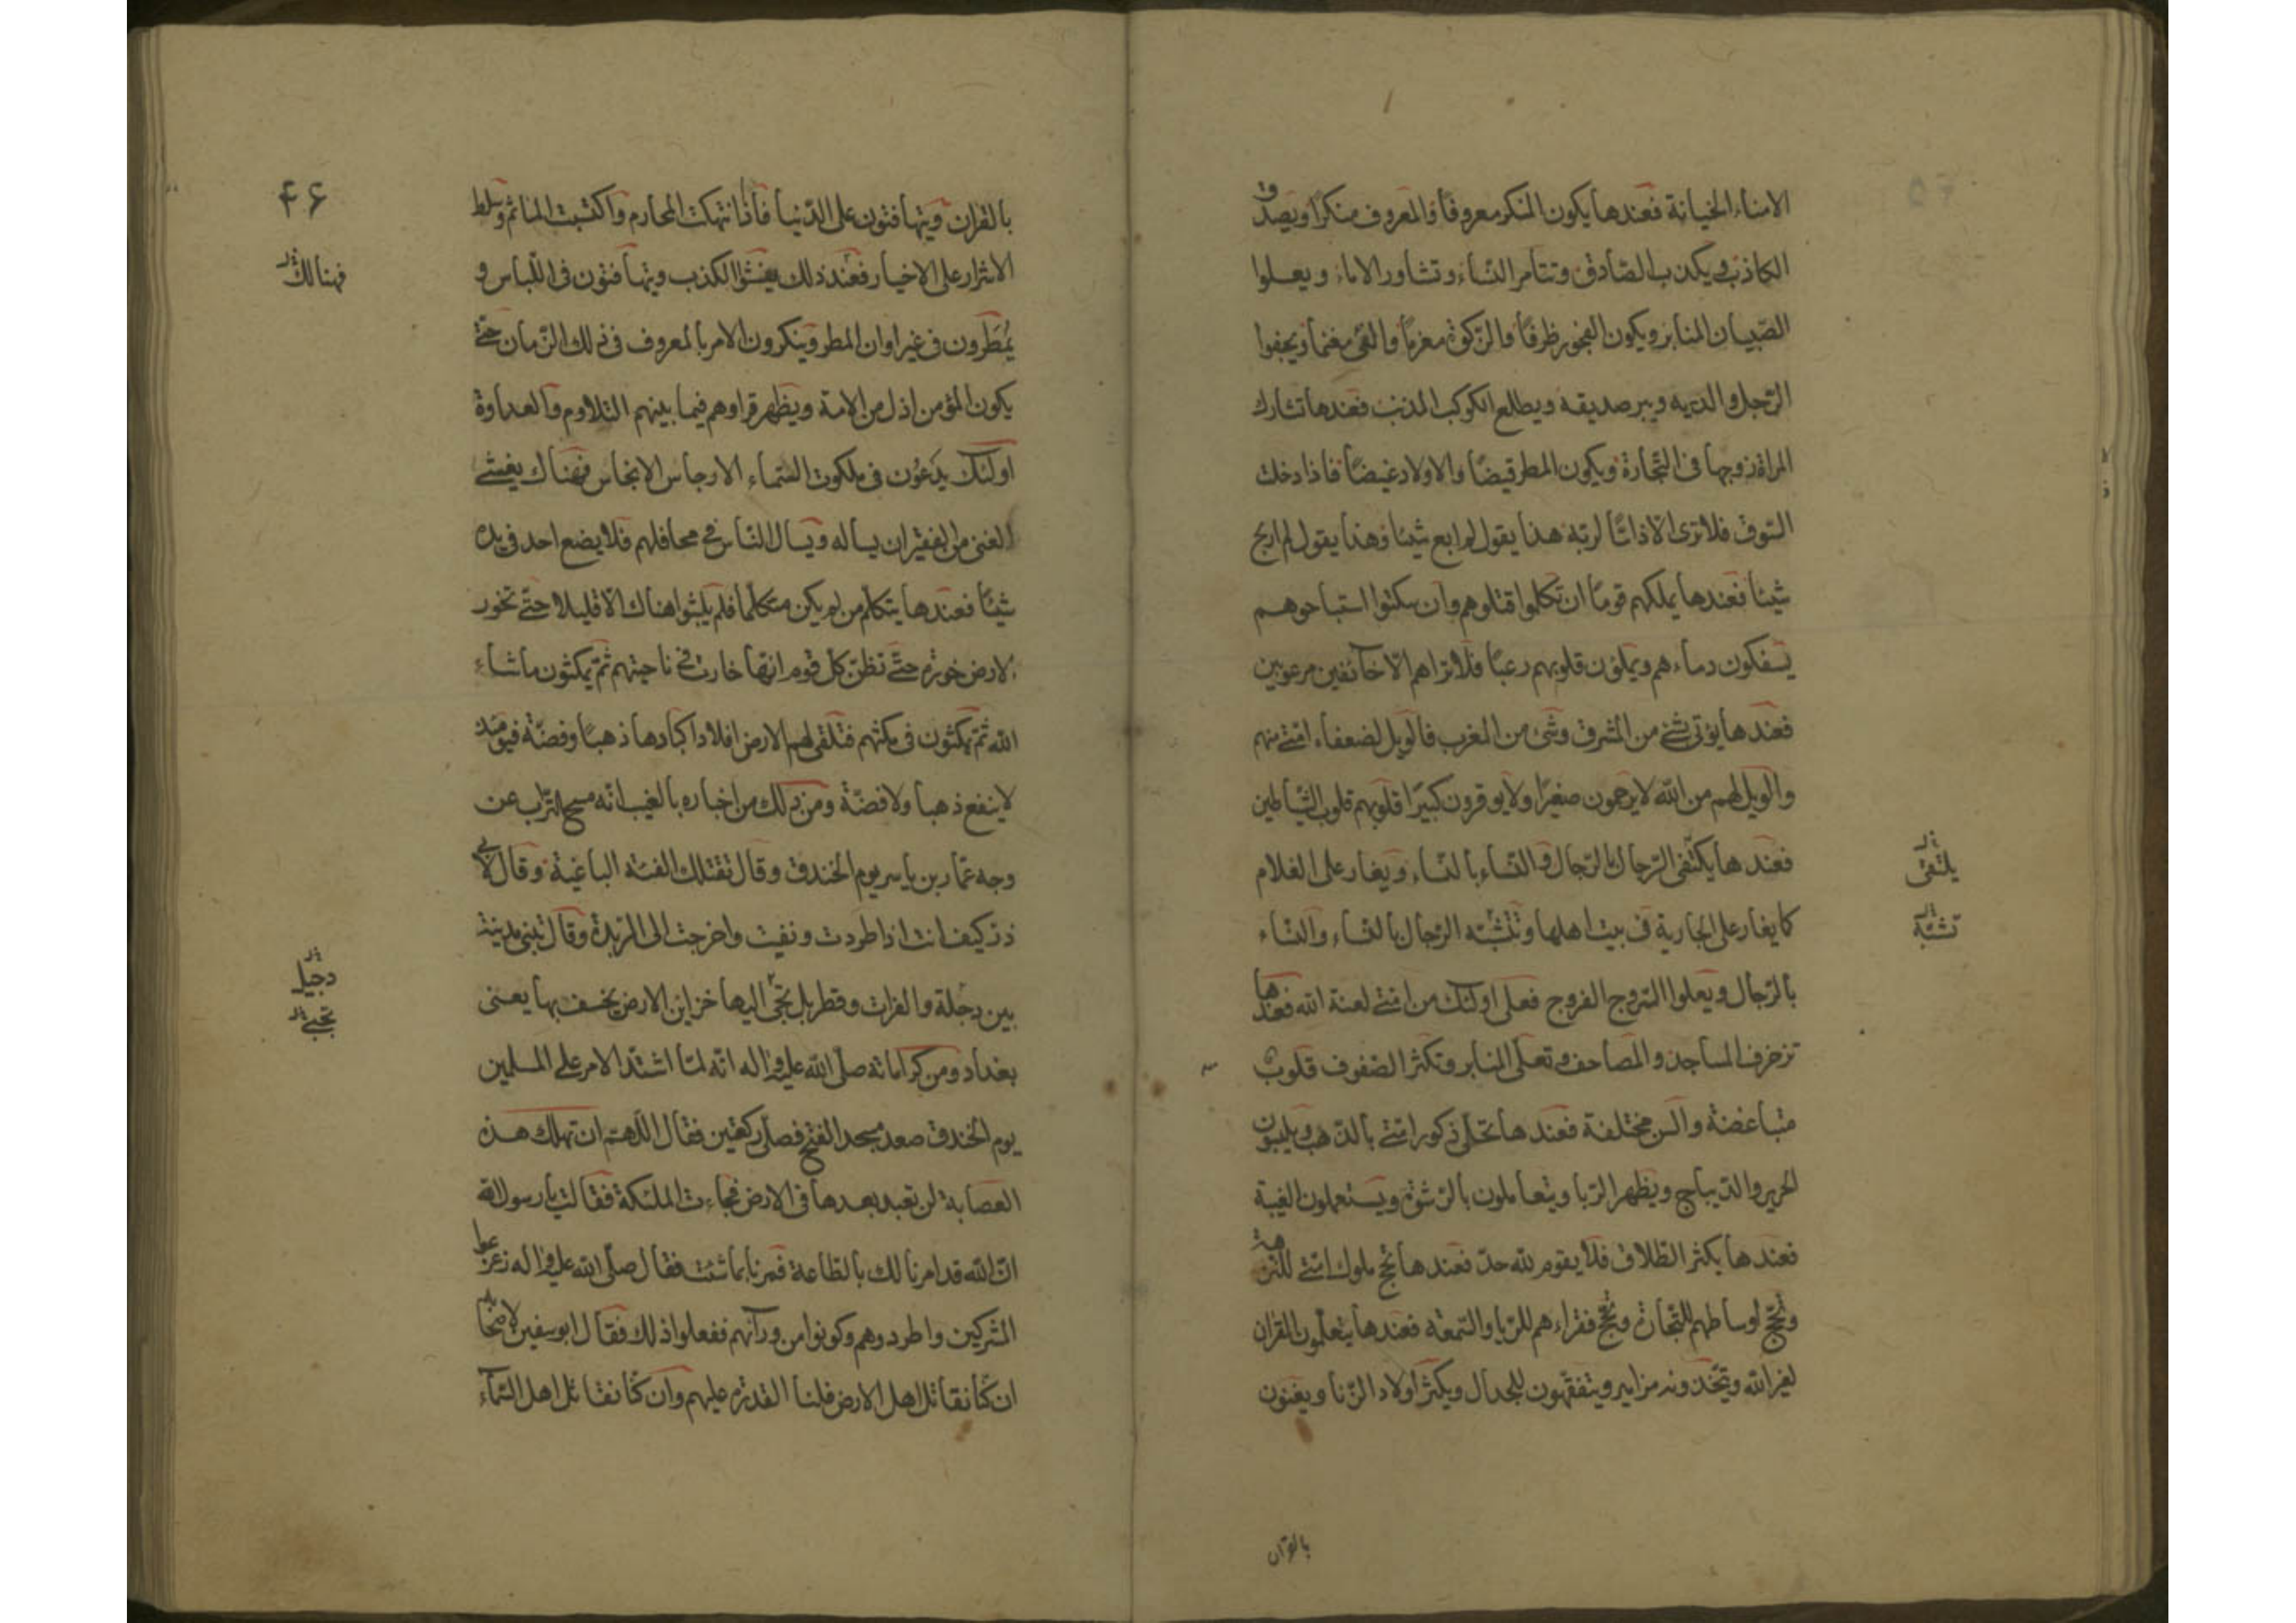 الامناء الخيانة فعندها يكون المنكر معروفا والمعروف منكرا ويصدق
الكاذب ويكذب الصادق وتتامر النساء وتشاور الاماء ويعلوا
الصبيان المنابر ويكون الفجور ظرفا والزكوة مغرما والفئ مغنما ويجفوا
الرجل والديه ويبر صديقه ويطلع الكوكب المذنب فعندها تشارك
المراة زوجها فى التجارة ويكون المطر قيضا والاولاد غيضا فاذا دخلت
السوق فلا ترى الا ذاما لربه هذا يقول لم ابع شيئا وهذا يقول لم اربح
شيئا فعندها يملكهم قوما ان تكلموا قتلوهم وان سكتوا استباحوهم
يسفكون دماءهم ويملون قلوبهم رعبا فلا تراهم الا خائفين مرعوبين
فعندها يؤتى بشئ من المشرق وشئ من المغرب فالويل لضعفاء امتى منهم
والويل لهم من الله لا يرحمون صغيرا ولا يوقرون كبيرا قلوبهم قلوب الشياطين
فعندها يكتفى الرجال بالرجال والنساء بالنساء ويغار على الغلام
يلتقى
كما يغار على الجارية فى بيت اهلها وتتشبه الرجال بالنساء والنساء
تشبه
بالرجال ويعلوا السروج الفروج فعلى اولئك من امتى لعنة الله فعندها
تزخرف المساجد والمصاحف وتعلى المنابر وتكثر الصفوف قلوب
متباغضة والسن مختلفة فعندها تحلى ذكور امتى بالذهب ويلبسون
الحرير والديباج ويظهر الربا ويتعاملون بالرشوة ويستعملون الغيبة
فعندها يكثر الطلاق فلا يقوم لله حد فعندها تحج ملوك امتى للنزهة
وتحج اوساطهم للتجارة وتحج فقراءهم للريا والسمعة فعندها يتعلمون القران
لغير الله ويتخذونه مزامير ويتفقهون للجدال ويكثر اولاد الزنا ويغنون
بالقران
۴۶
بالقران ويتهافتون على الدنيا فاذا انتهكت المحارم واكتسبت الماثم وسلط
الاشرار على الاخيار فعند ذلك يفشوا الكذب ويتهافتون فى اللباس و
فهنالك
يمطرون فى غير اوان المطر وينكرون الامر بالمعروف فى ذلك الزمان حتى
يكون المؤمن اذل من الامة ويظهر قراوهم فيما بينهم التلاوم والعداوة
اولئك يدعون فى ملكوت السماء الارجاس الانجاس فهناك يغشى
الغنى من الفقير ان يساله ويسال الناس فى محافلهم فلا يضع احد فى يده
شيئا فعندها يتكلم من لم يكن متكلما فلم يلبثوا هناك الا قليلا حتى تخور
الارض خورة حتى تظن كل قوم انها خارت فى ناحيتهم ثم يمكثون ماشاء
الله ثم يمكثون فى مكثهم فتلقى لهم الارض افلاذ اكبادها ذهبا وفضة فيومئذ
لا ينفع ذهبا ولا فضة ومن ذلك من اخباره بالغيب انه مسح التراب عن
وجه عمار بن ياسر يوم الخندق وقال تقتلك الفئة الباغية وقال لابى
ذر كيف انت اذا طردت ونفيت واخرجت الى الربذة وقال تبنى مدينة
بين دجلة والفرات وقطربل تجئ اليها خزاين الارض يخسف بها يعنى
دجيل
تجبى
بغداد ومن كراماته صلى الله عليه واله انه لما اشتد الامر على المسلمين
يوم الخندق صعد مسجد الفتح فصلى ركعتين فقال اللهم ان تهلك هذه
العصابة لن تعبد بعدها فى الارض فجاءت الملئكة فقالت يا رسول الله
ان الله قد امرنا لك بالطاعة فمرنا بما شئت فقال صلى الله عليه واله زعزعوا
المشركين واطردوهم وكونوا من ورائهم ففعلوا ذلك فقال ابو سفين لاصحابه
ان كنا نقاتل اهل الارض فلنا القدرة عليهم وان كنا نقاتل اهل السماء